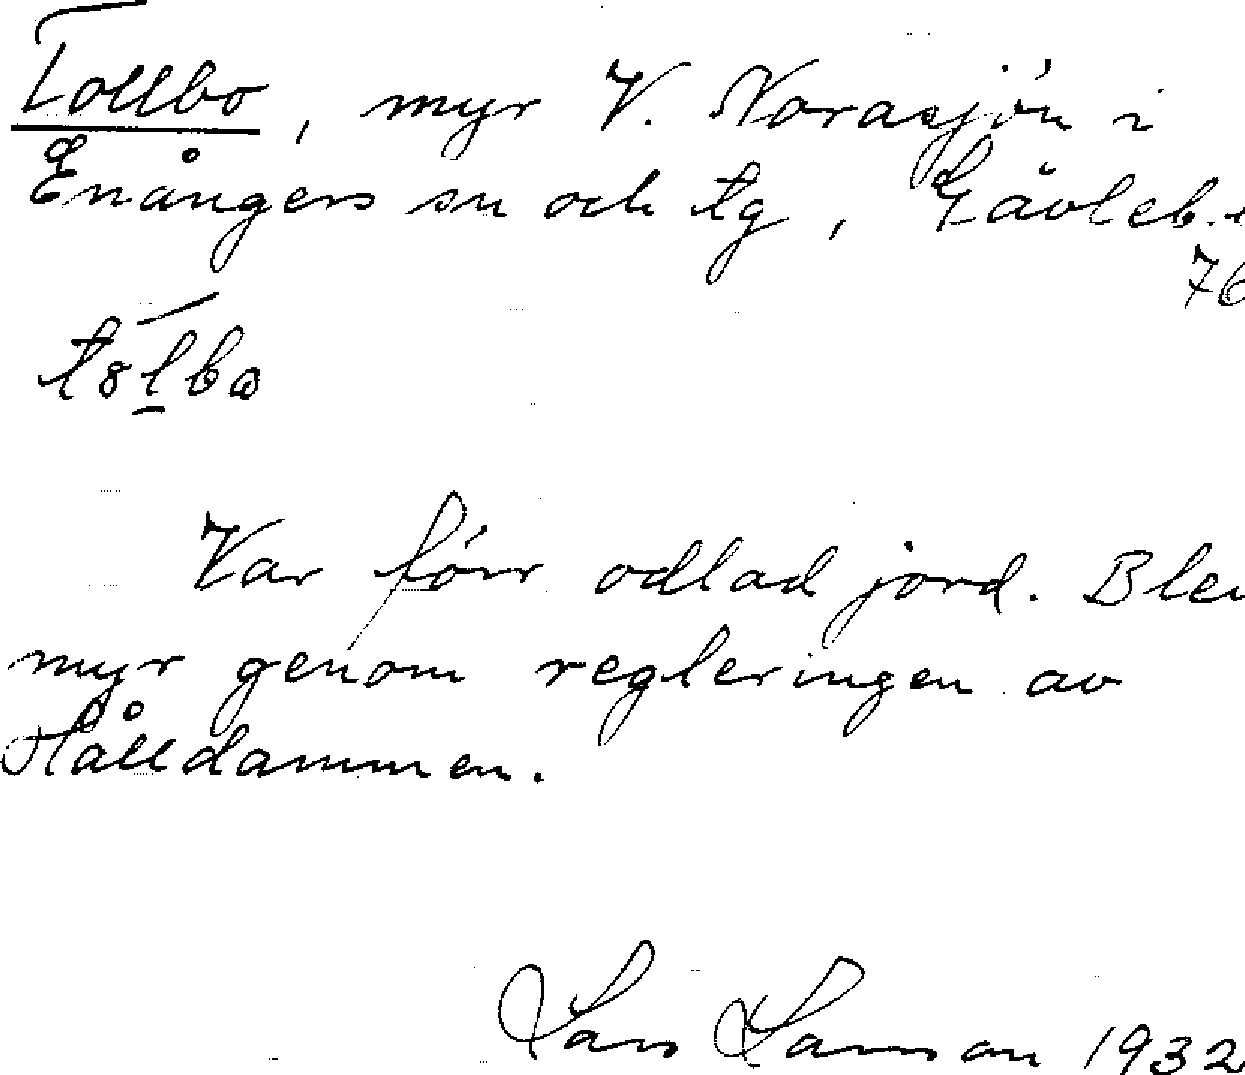 Tollbo, myr V. Norasjön i
Enångers sn och tg, Gävleb.
76
Var förr odlad jord. Blev
myr genom regleringen av
Hålldammen.
Lars Larsson 1932